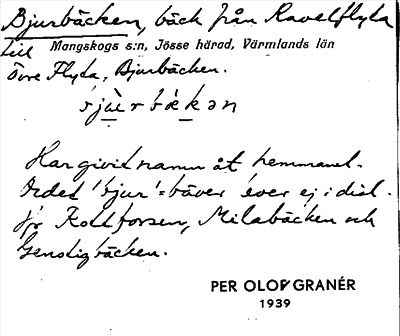 Bjurbäcken, bäck från Ravelflyta
till Mangskogs s:n, Jösse härad, Värmlands län
Övre Flyta, Bjurbäcken.
Har givit namn åt hemmanet.
Ordet 'bjur' = bäver över ej i dial.
Jfr Kolforsen, Milabäcken och
bäcken.
PER OLOF GRANÉR
1939